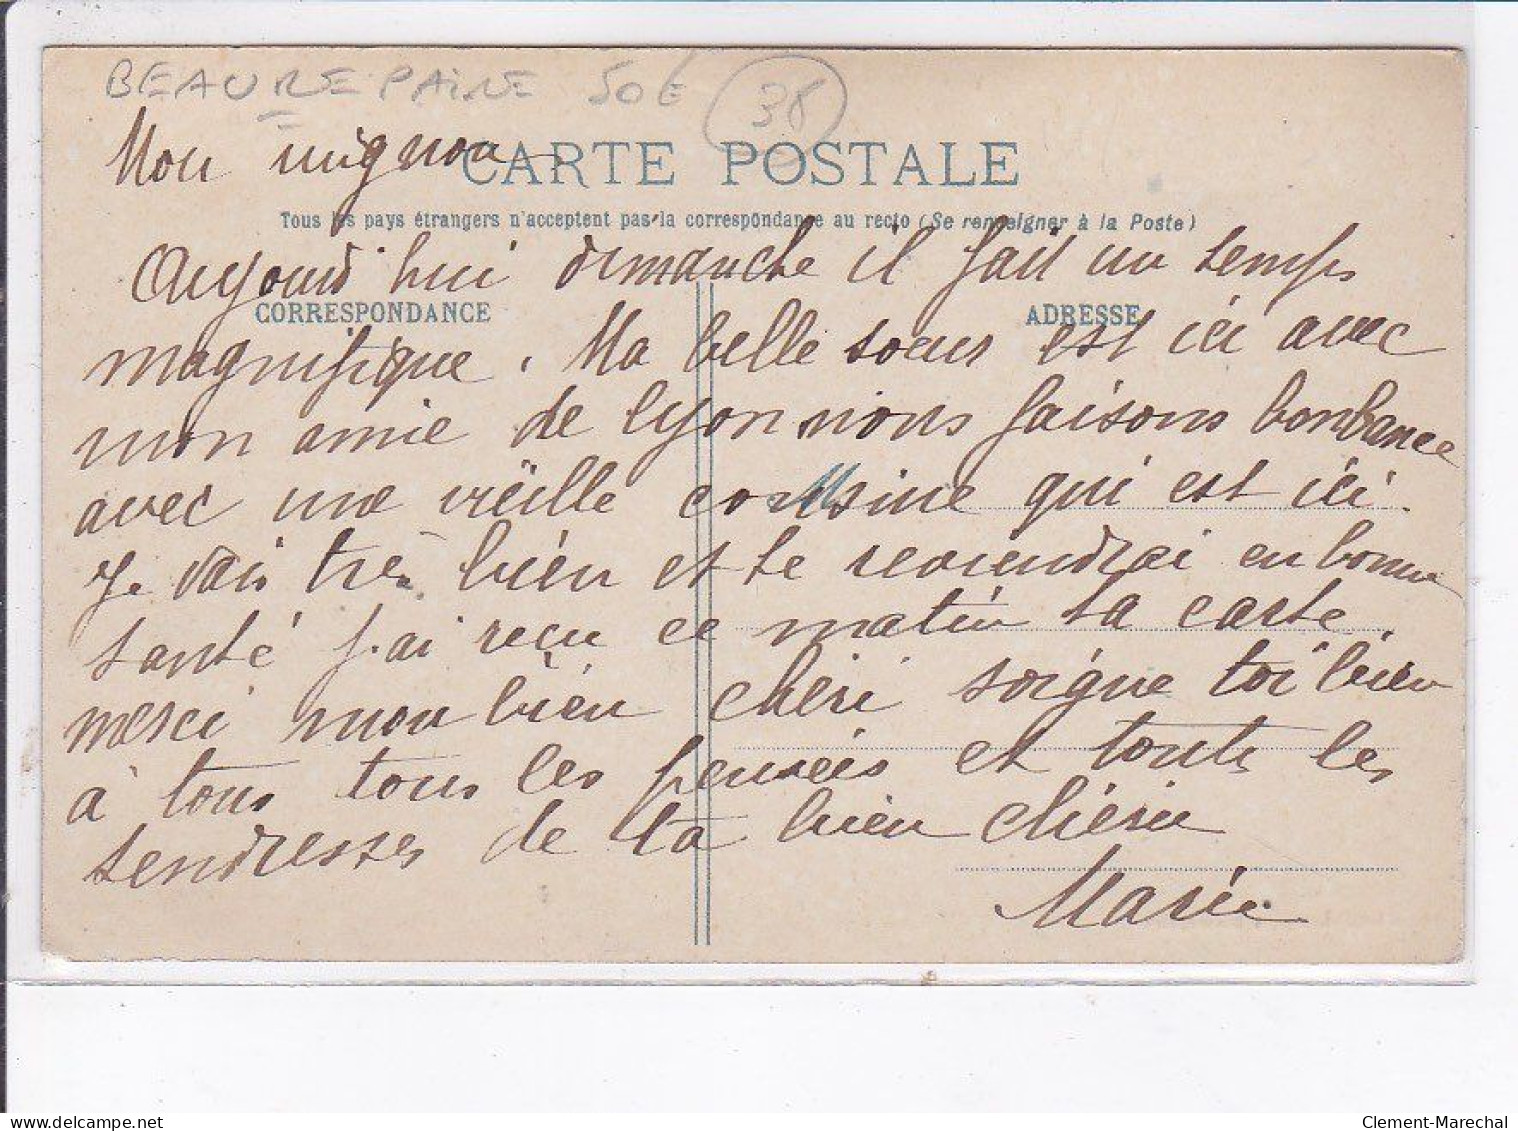 BEAUREPAIRE 50€ 38
Mon mignon
CARTE POSTALE
Tous les pays étrangers n'acceptent pas la correspondance au recto (Se renseigner à la Poste)
Aujourd'hui dimanche il fait un temps
CORRESPONDANCE
ADRESSE
magnifique. Ma belle soeur est ici avec
mon amie de Lyon nous faisons bonbance
avec une vieille cousine qui est ici.
Je vais très bien et te reviendrai en bonne
santé j'ai reçu ce matin ta carte
merci mon bien chéri soigne toi bien
à tous tous les pensées et toute les
tendresses de ta bien chérie
Marie
delcampe.net
Clement-Marechal